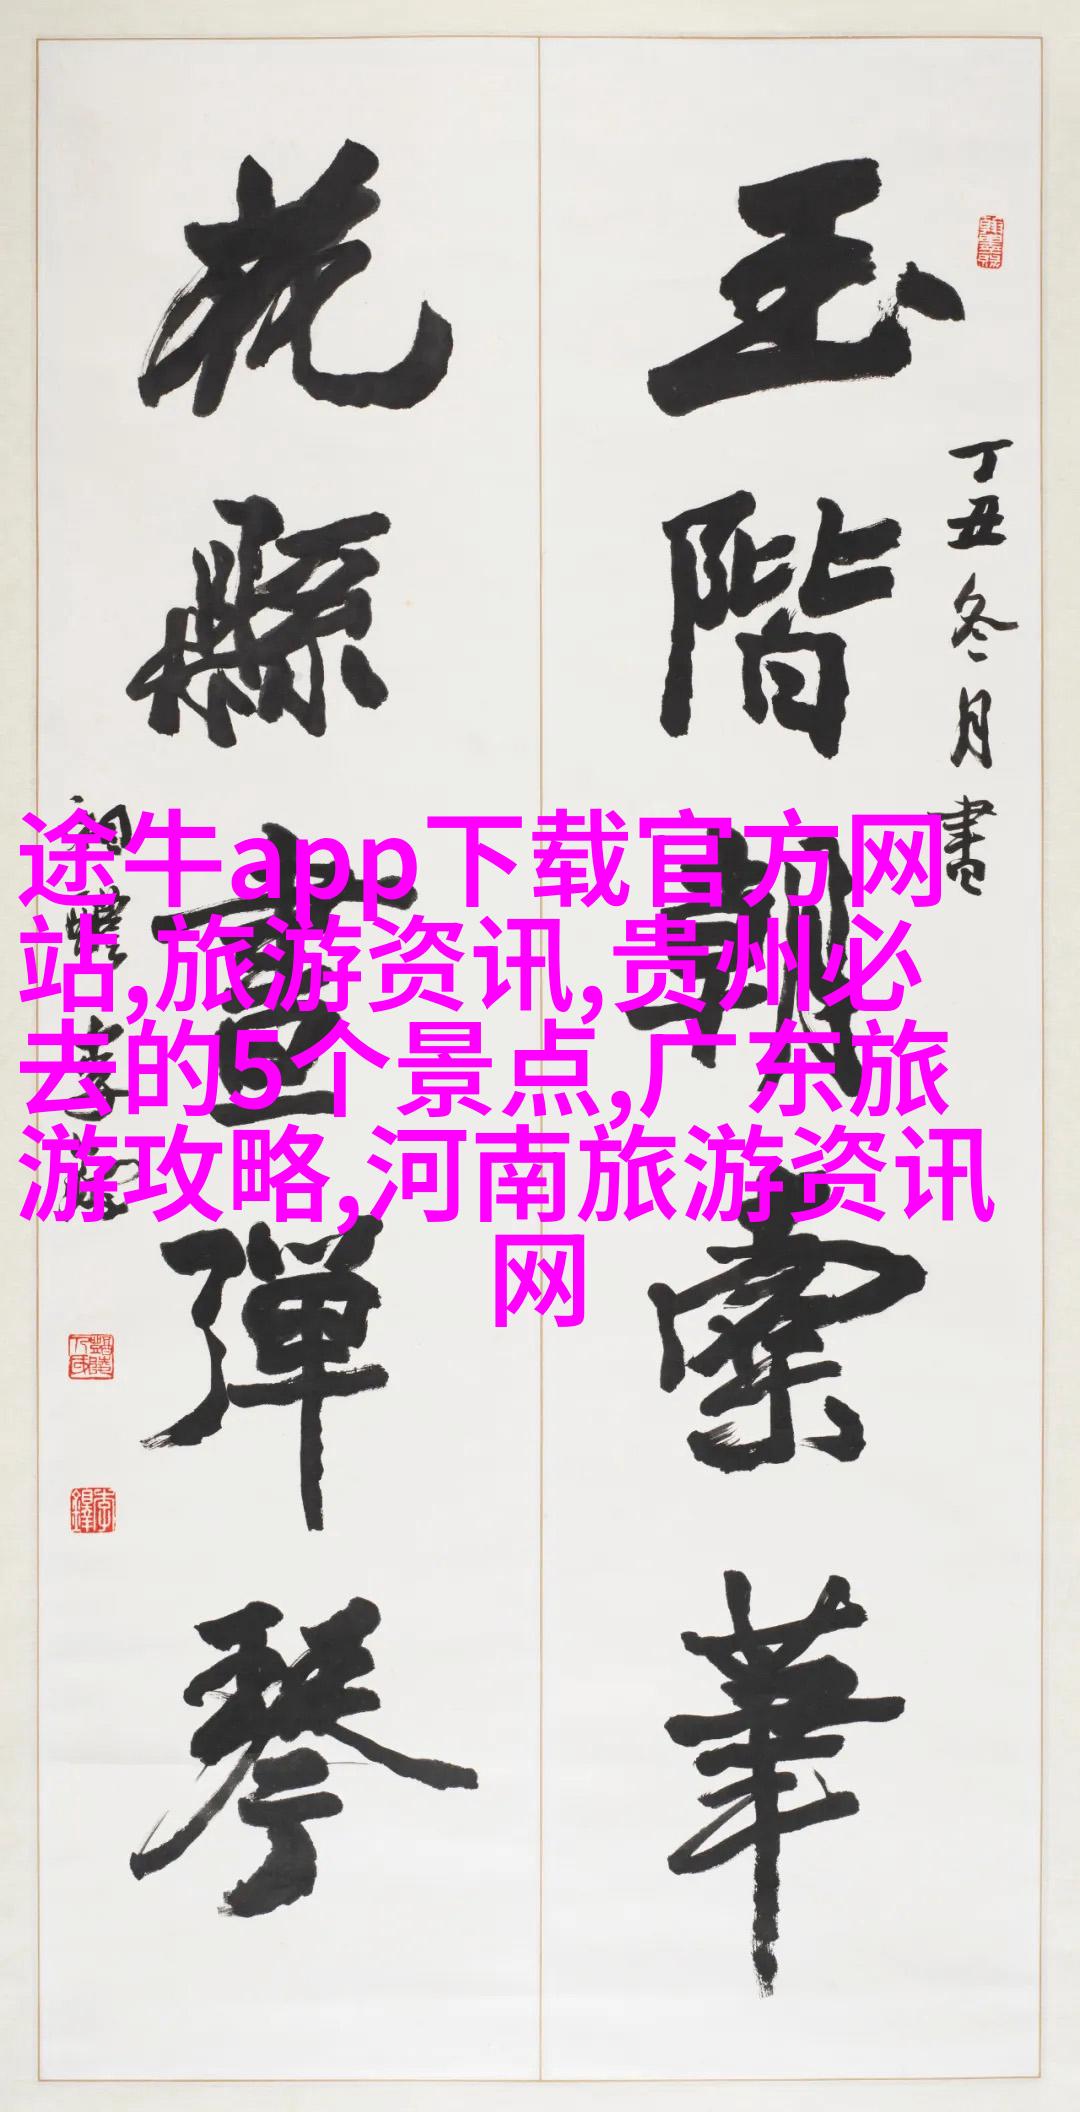 玉階朝
筆
丁丑冬月書
花縣畫彈琴
途牛app下载官方网
站,旅游资讯,贵州必
去的5个景点,广东旅
游攻略,河南旅游资讯
网